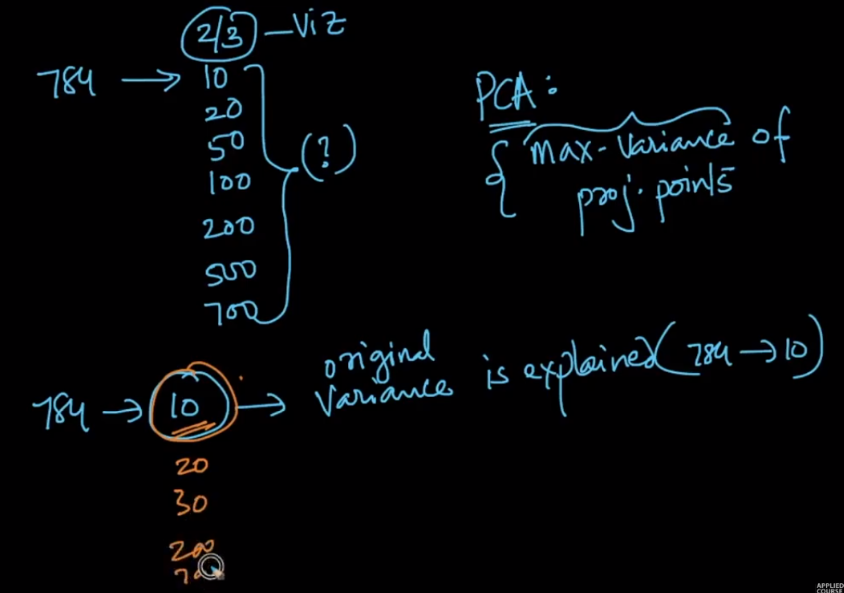 2/3 — Viz
784 → 10
20
50
100
200
500
700
(?)
PCA:
{ max-variance of
proj. points
784 → 10 → original variance is explained (784 → 10)
20
30
200
APPLIED
COURSE